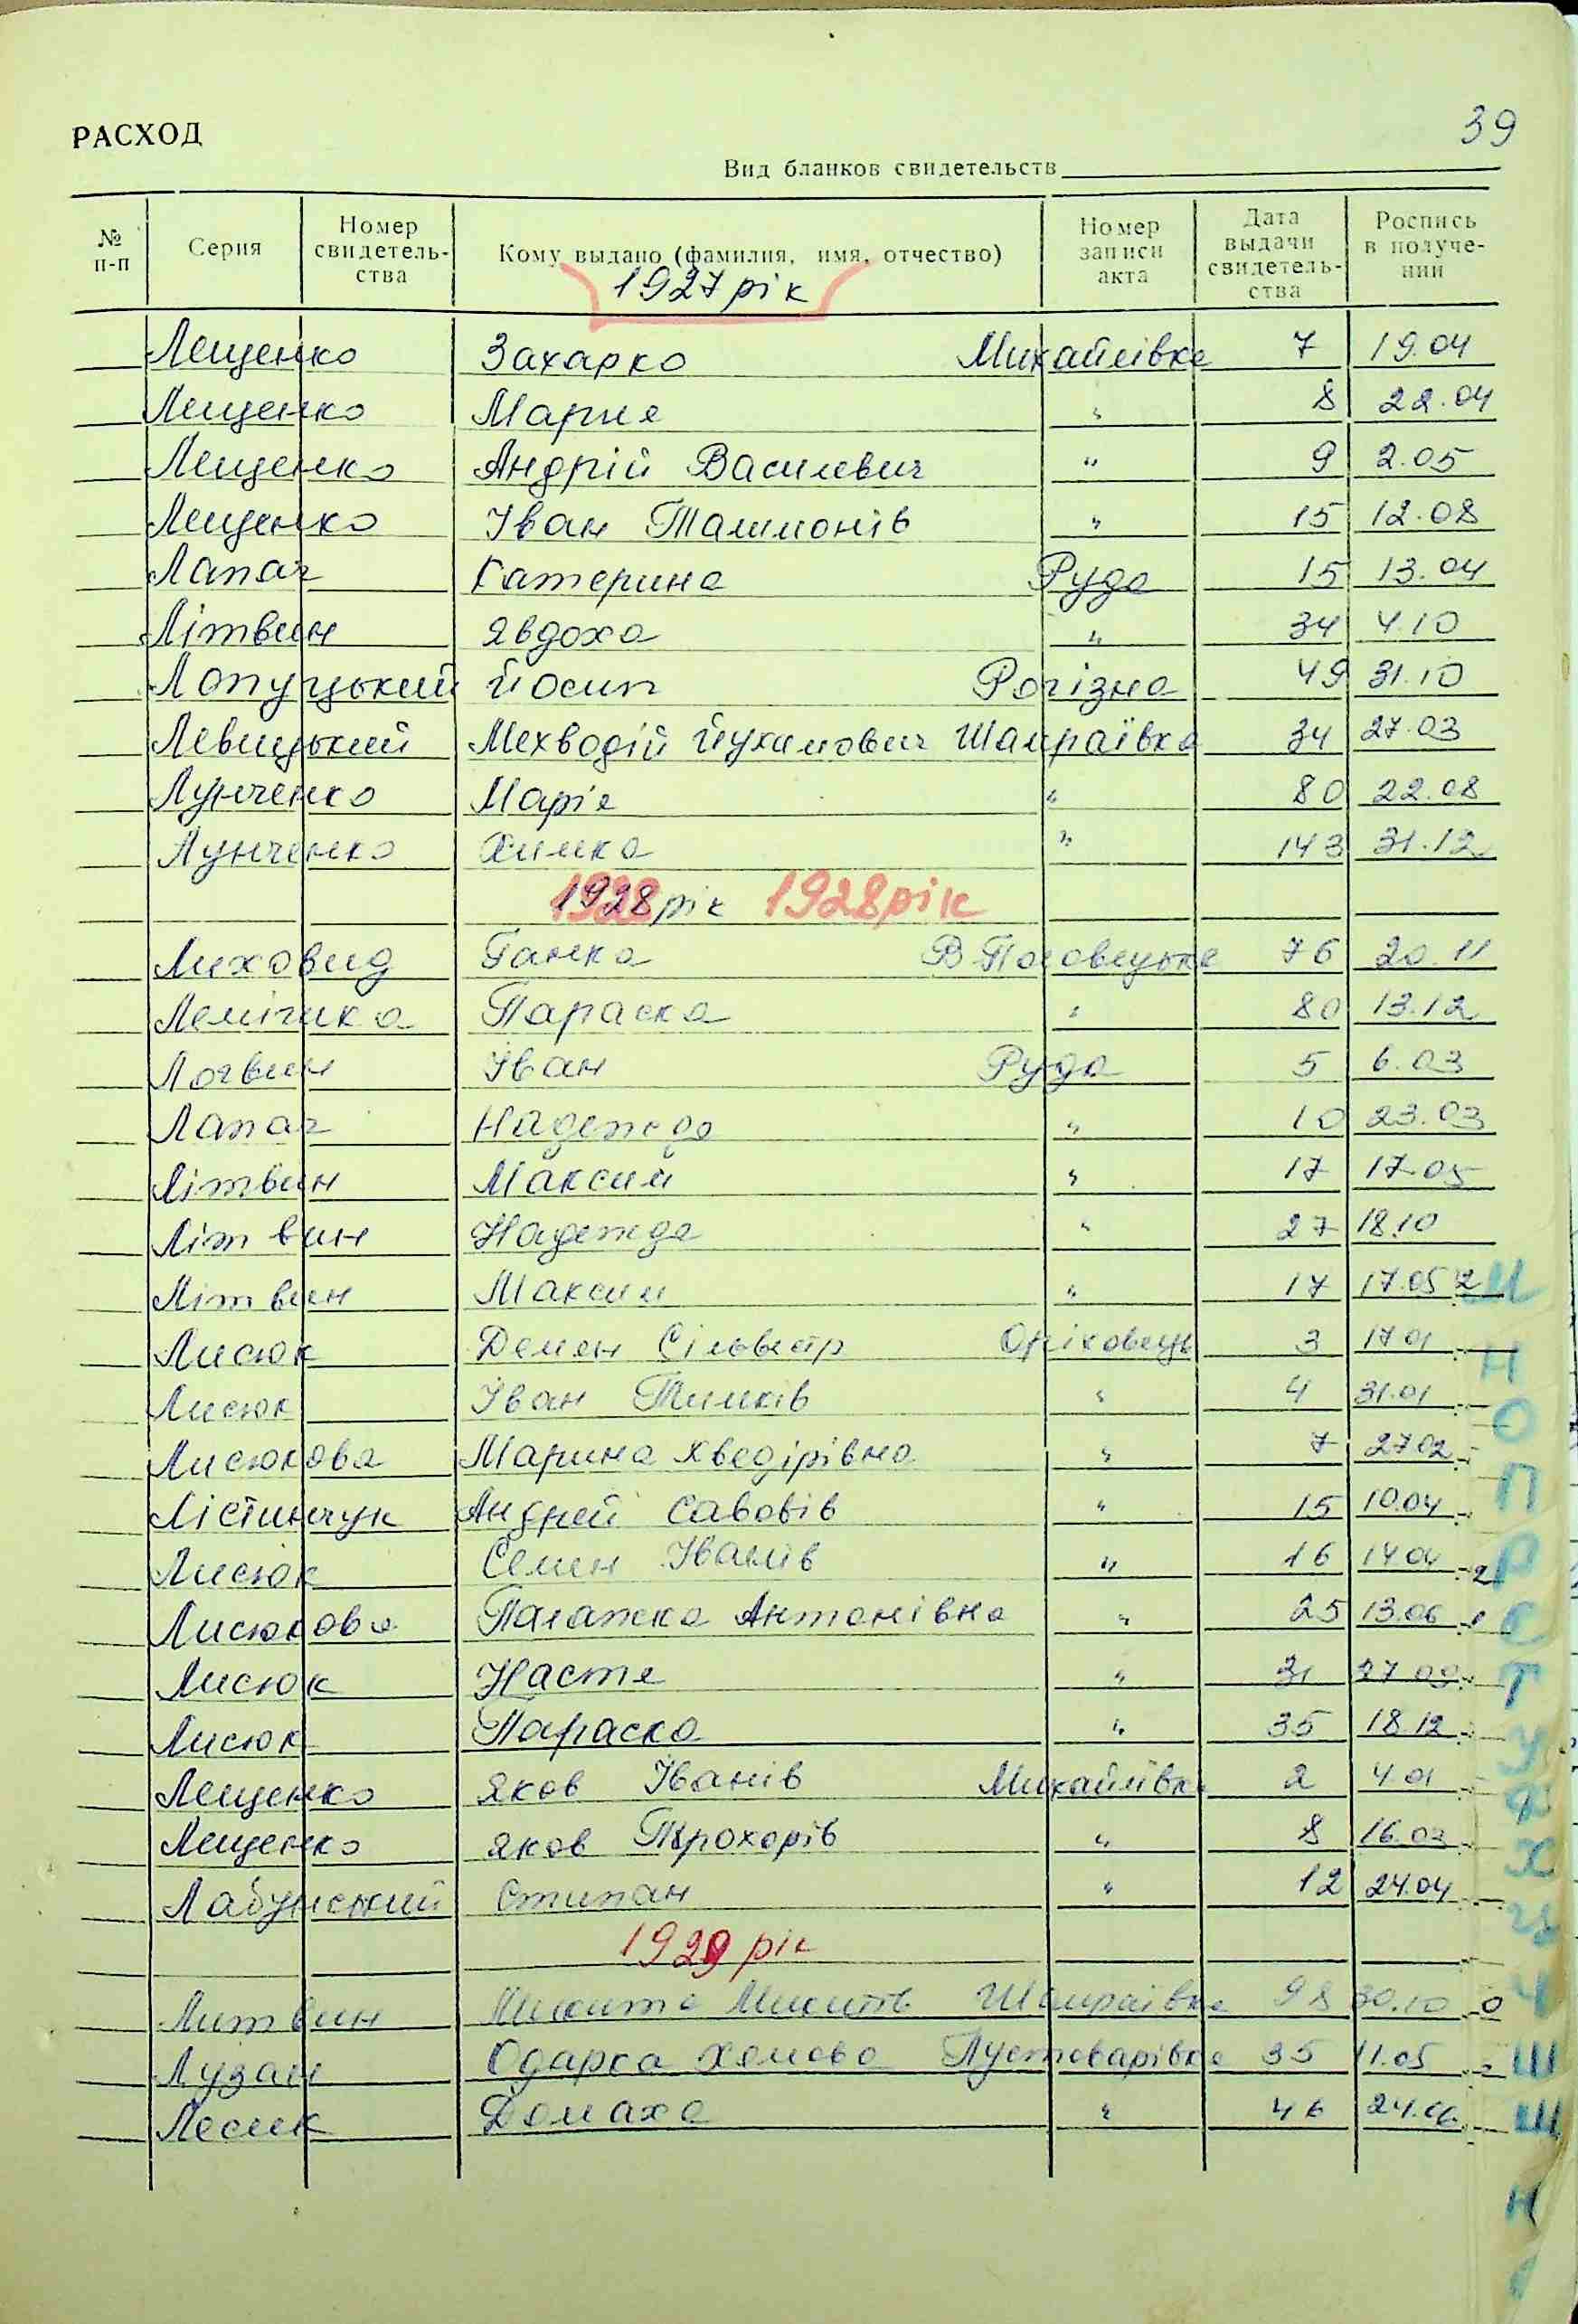 39
РАСХОД
Вид бланков свидетельств
№ п-п Серия Номер свидетель-ства Кому выдано (фамилия, имя, отчество) Номер записи акта Дата выдачи свидетель-ства Роспись в получе-нии
1927 рік
Лещенко Захарко Михайлівка 7 19.04
Лещенко Марія " 8 22.04
Лещенко Андрій Василевич " 9 2.05
Лещенко Іван Талимонів " 15 12.08
Лапач Катерина Руда 15 13.04
Літвин Явдоха " 34 4.10
Лопуцький Йосип Рогізна 49 31.10
Левицький Мехводій Йухимович Шамраївка 34 27.03
Лунченко Марія " 80 22.08
Лунченко Химка " 143 31.12
1928 рік 1928 рік
Лиховид Ганка В Половецьке 76 20.11
Лемішка Параска " 80 13.12
Логвин Іван Руда 5 6.03
Лапач Надежда " 10 23.03
Літвин Максим " 17 17.05
Літвин Надежда " 27 18.10
Літвин Максим " 17 17.05
Лисюк Демен Сільвестр Оріховець 3 17.01
Лисюк Іван Тимків " 4 31.01
Лисюкова Марина Хведірівна " 7 27.02
Лістинчук Андрей Савовів " 15 10.04
Лисюк Семен Іванів " 16 14.04
Лисюкова Палажка Антонівна " 25 13.06
Лисюк Настя " 31 27.09
Лисюк Параска " 35 18.12
Лещенко Яков Іванів Михайлівка 2 4.01
Лещенко Яков Прохорів " 8 16.03
Лабунський Стипан " 12 24.04
1929 рік
Литвин Микита Микитів Шамраївка 98 30.10
Лузан Одарка Хомова Пустоварівка 35 11.05
Лесик Домаха " 46 24.06
М
Н
О
П
Р
С
Т
У
Ф
Х
Ч
Ш
Щ